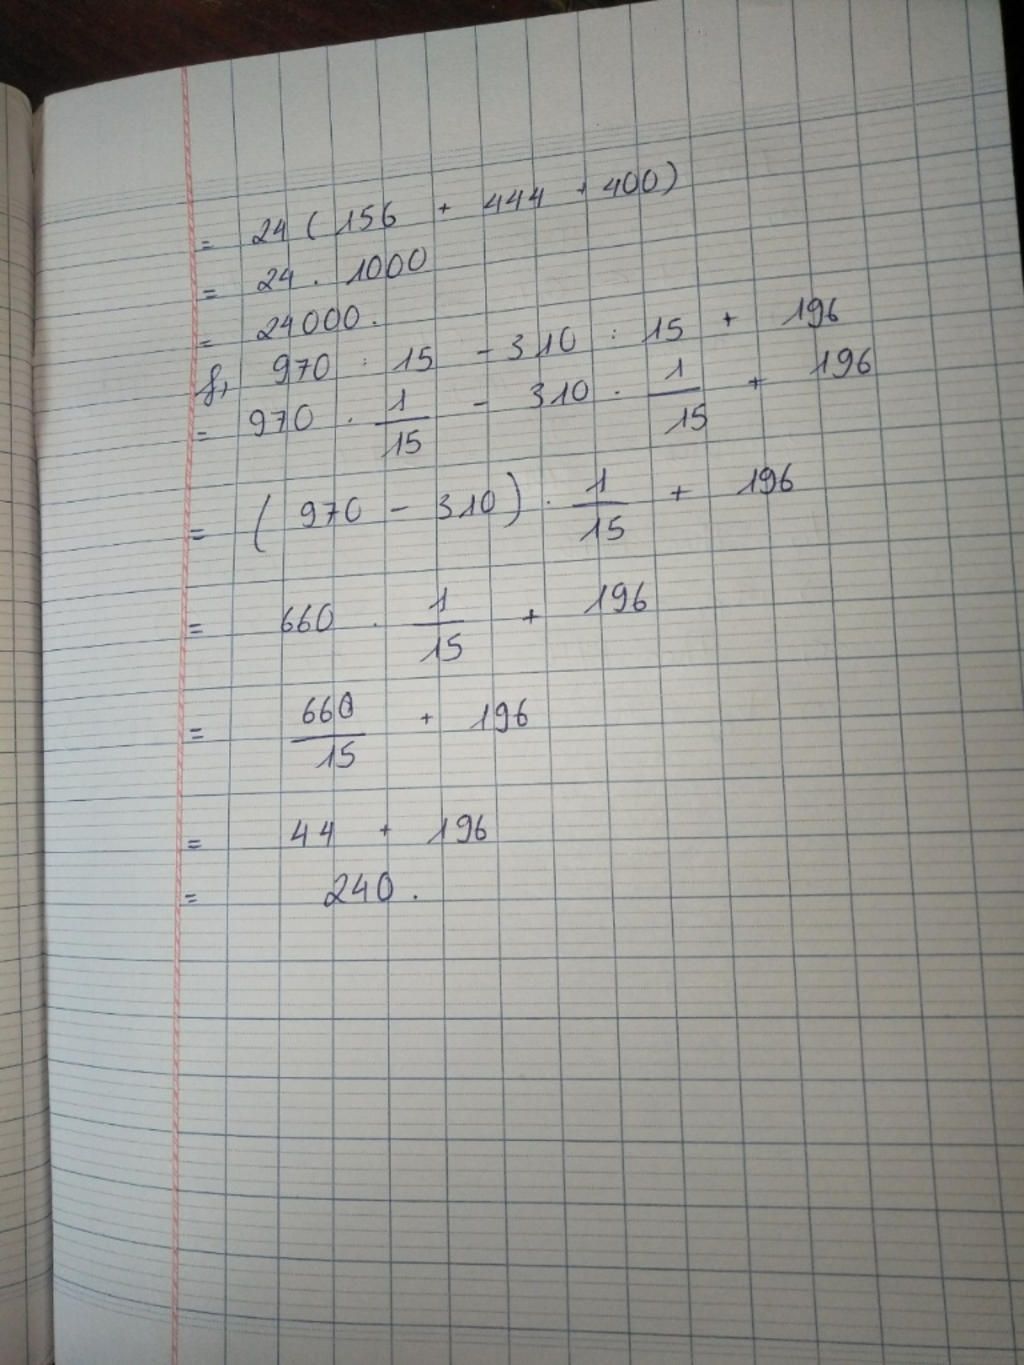 = 24 ( 156 + 444 + 400)
= 24 . 1000
= 24000.
f, 970 : 15 - 310 : 15 + 196
= 970 . 1/15 - 310 . 1/15 + 196
= ( 970 - 310 ) . 1/15 + 196
= 660 . 1/15 + 196
= 660/15 + 196
= 44 + 196
= 240.